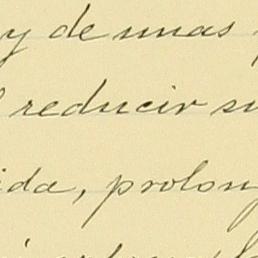 y de unas
reducir su
ida, prolon